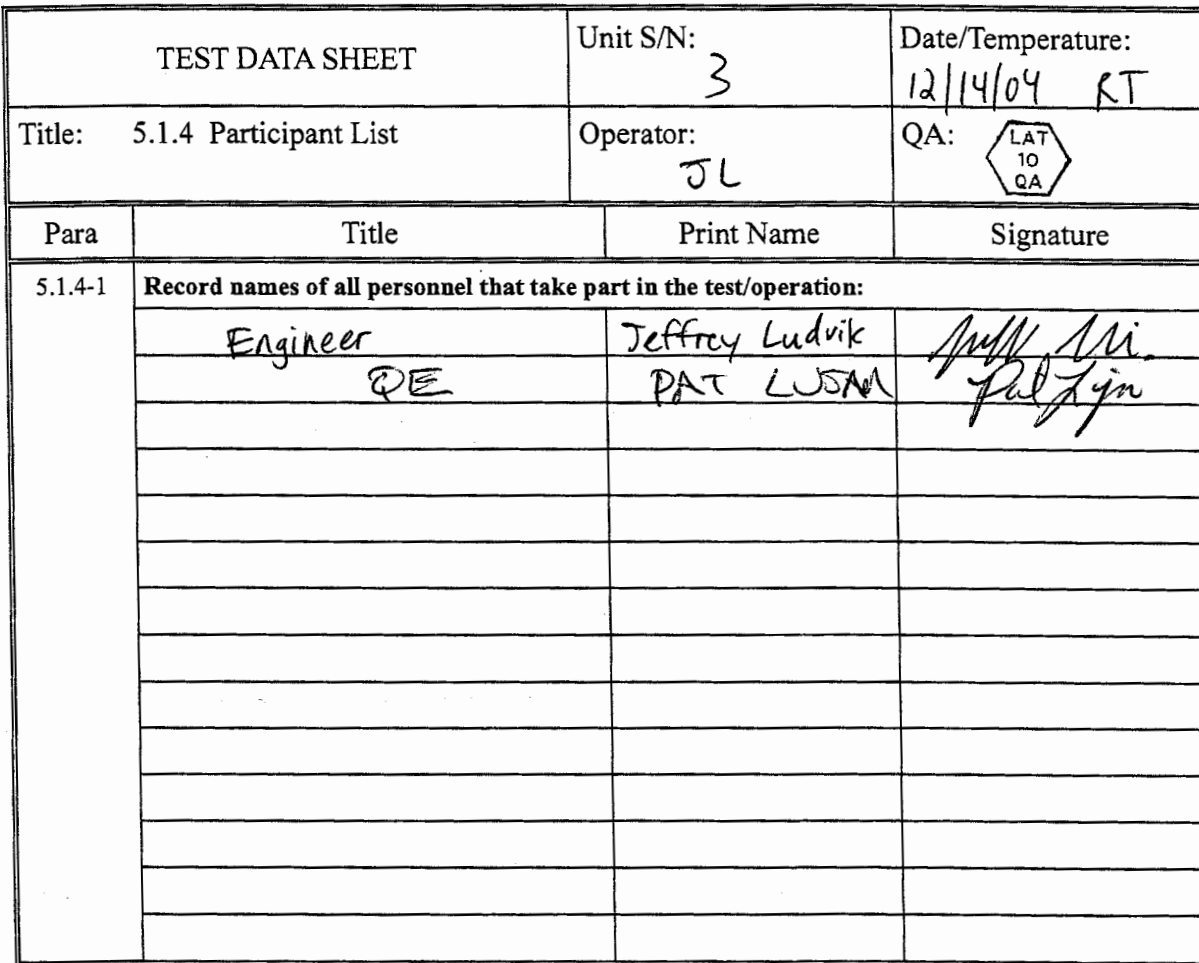 TEST DATA SHEET
Unit S/N:
3
Date/Temperature:
12/14/04 RT
Title: 5.1.4 Participant List
Operator:
JL
QA:
LAT
10
QA
Para Title Print Name Signature
5.1.4-1 Record names of all personnel that take part in the test/operation:
Engineer Jeffrey Ludvik
QE PAT LUJAN Pat